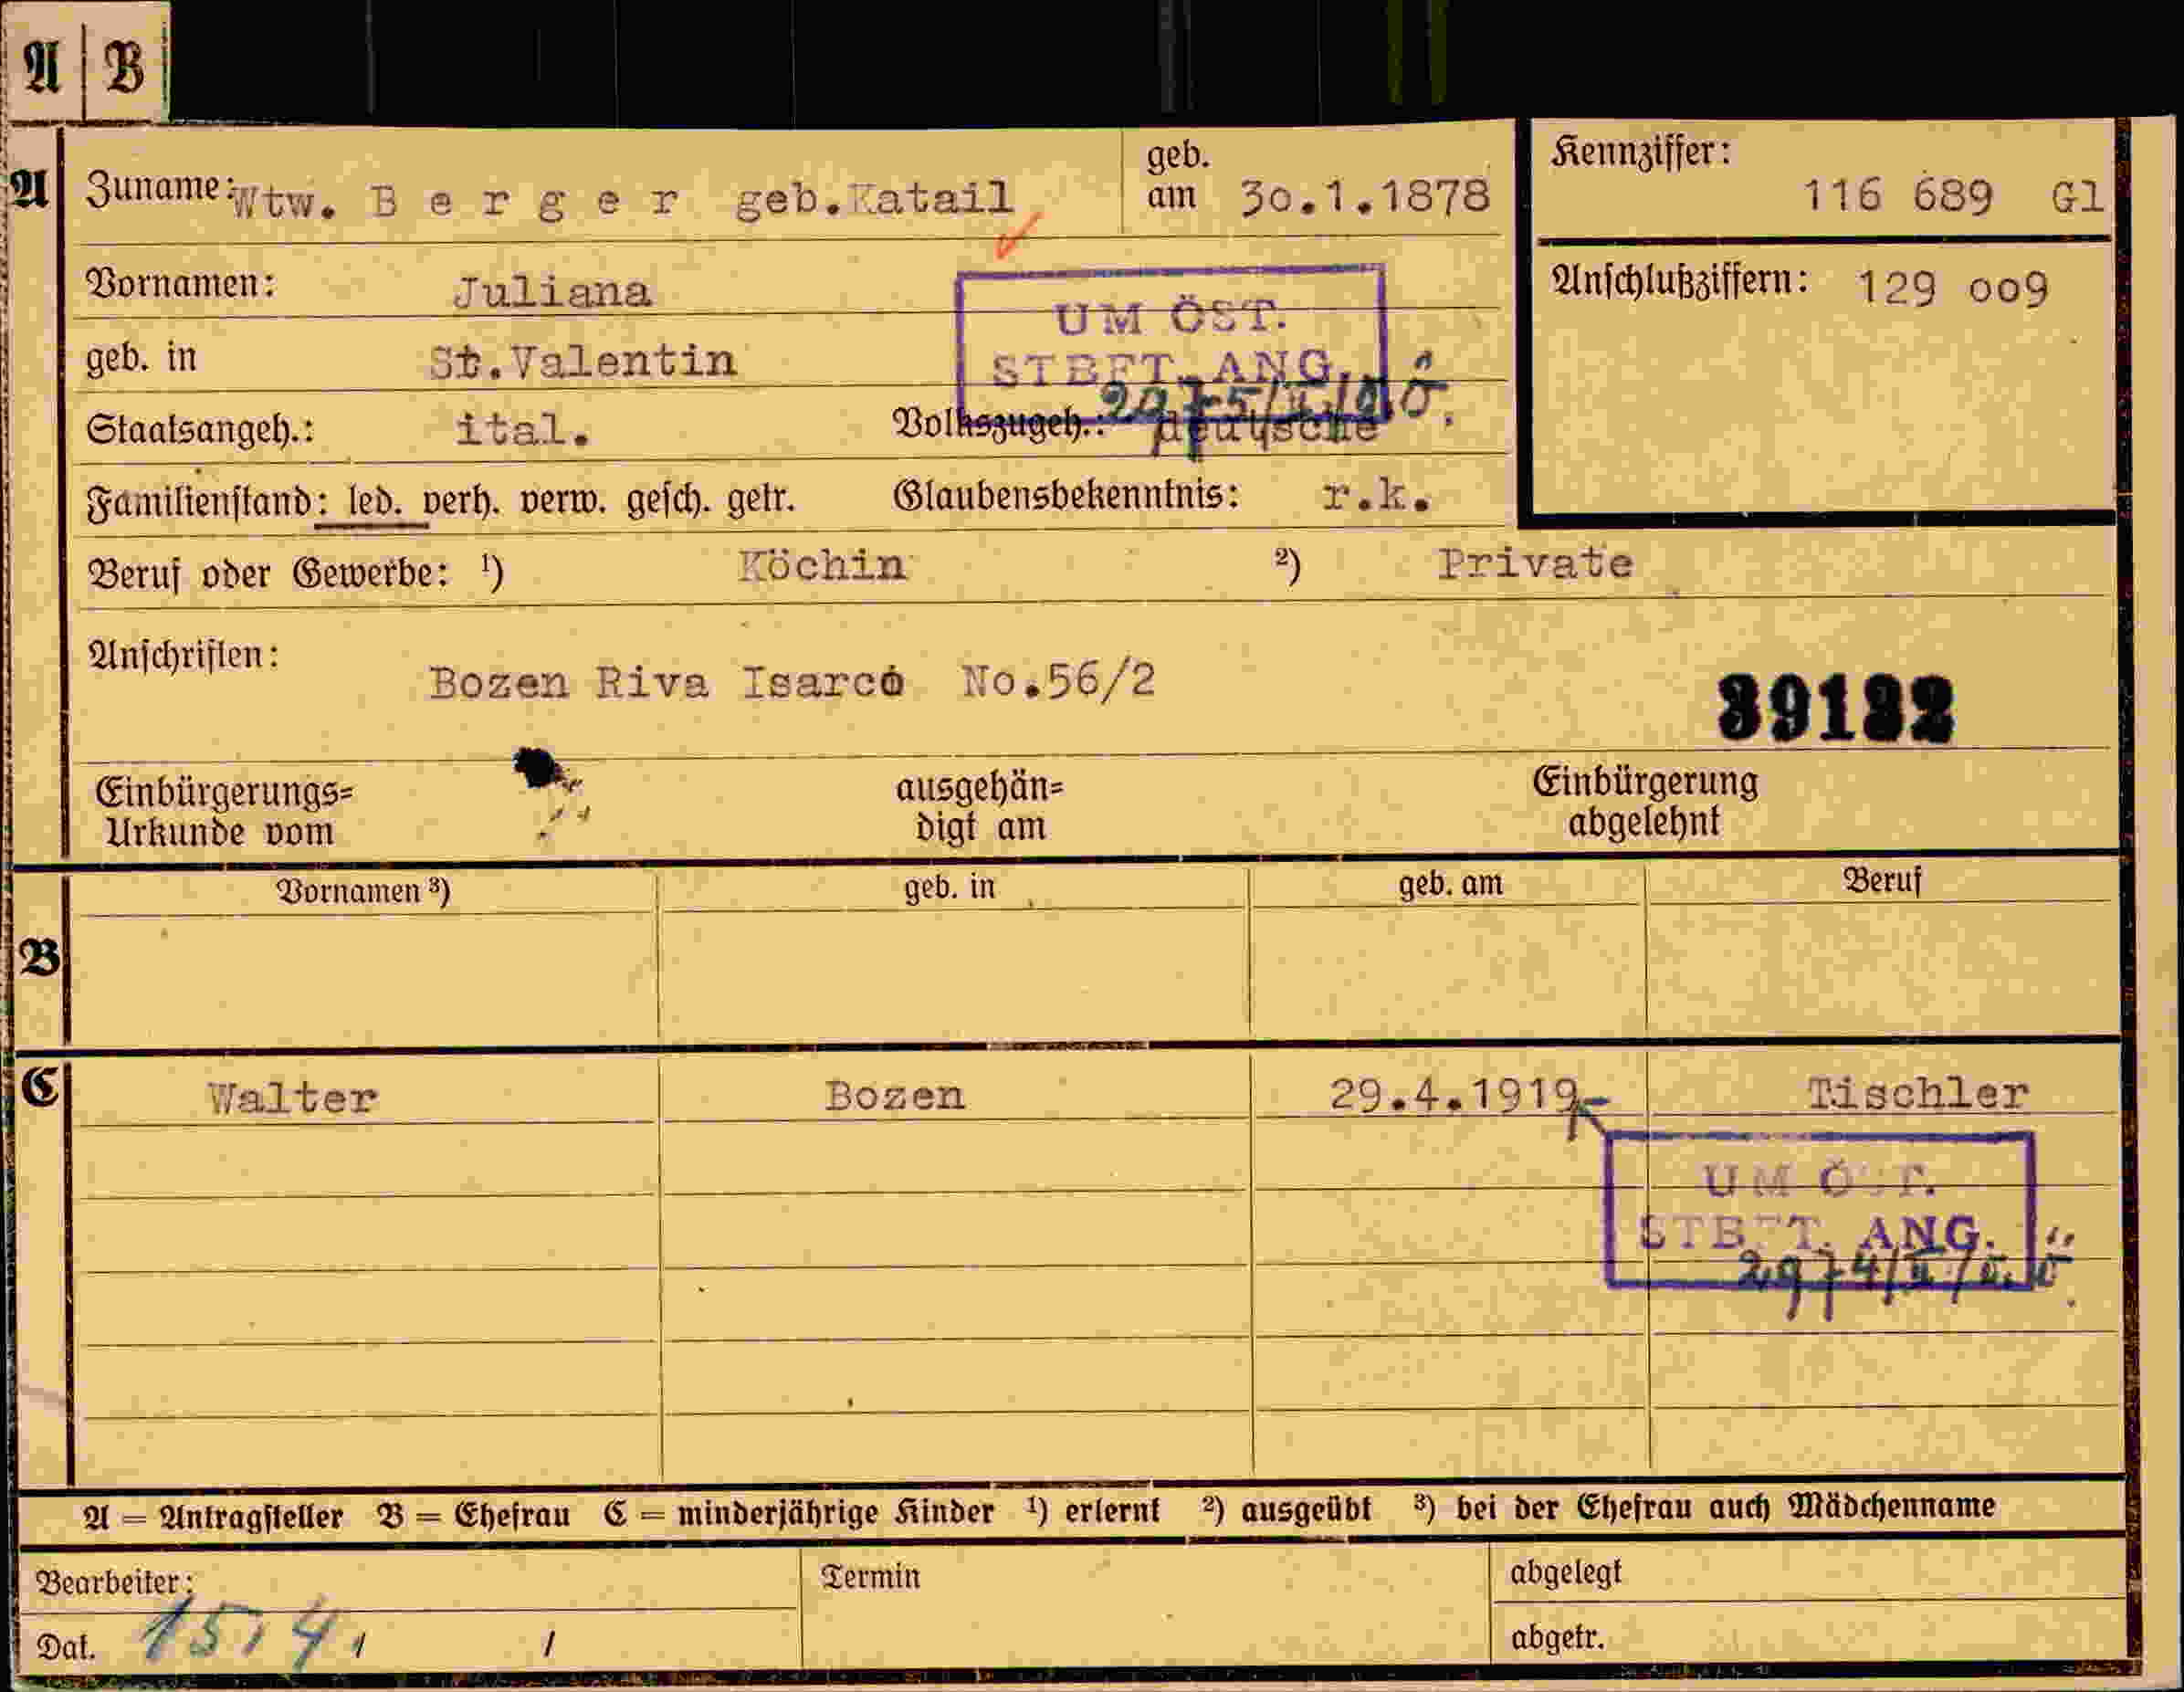 A | B
A
Zuname: Wtw. B e r g e r geb. Katail
geb. am 30.1.1878
Kennziffer:
116 689 Gl
Vornamen: Juliana
Anschlußziffern: 129 oo9
UM ÖST.
geb. in St.Valentin
STBFT. ANG.
Staatsangeh.: ital. Volkszugeh.: deutsche
Familienstand: led. verh. verw. gesch. getr. Glaubensbekenntnis: r.k.
Beruf oder Gewerbe: ¹) Köchin ²) Private
Anschriften:
Bozen Riva Isarco No.56/2
39132
Einbürgerungs=
Urkunde vom
ausgehän=
digt am
Einbürgerung
abgelehnt
Vornamen ³) geb. in geb. am Beruf
B
C Walter Bozen 29.4.1919 Tischler
UM ÖST.
STBFT. ANG.
A = Antragsteller B = Ehefrau C = minderjährige Kinder ¹) erlernt ²) ausgeübt ³) bei der Ehefrau auch Mädchenname
Bearbeiter: Termin abgelegt
Dat. 15/4/ / abgetr.